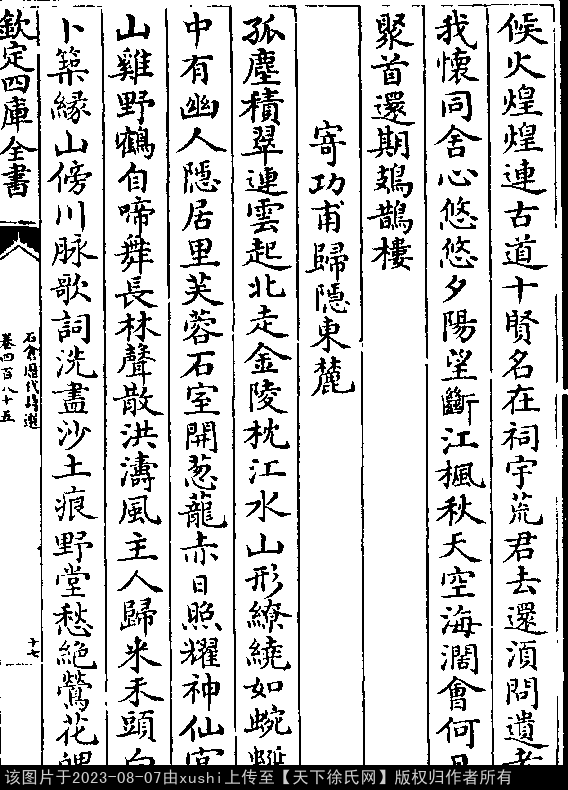 候火煌煌連古道十賢名在祠宇荒君去還須問遺老
我懷同舍心悠悠夕陽望斷江楓秋天空海濶會何日
聚首還期鳷鵲樓
寄功甫歸隱東麓
孤塵積翠連雲起北走金陵枕江水山形繚繞如蜿蜒
中有幽人隱居里芙蓉石室開葱蘢赤日照耀神仙宮
山雞野鶴自啼舞長林聲散洪濤風主人歸來禾頭白
卜築緣山傍川脉歌詞洗盡沙土痕野堂愁絶鶯花
欽定四庫全書
石倉歴代詩選
卷四百八十五
十七
该图片于2023-08-07由xushi上传至【天下徐氏网】版权归作者所有